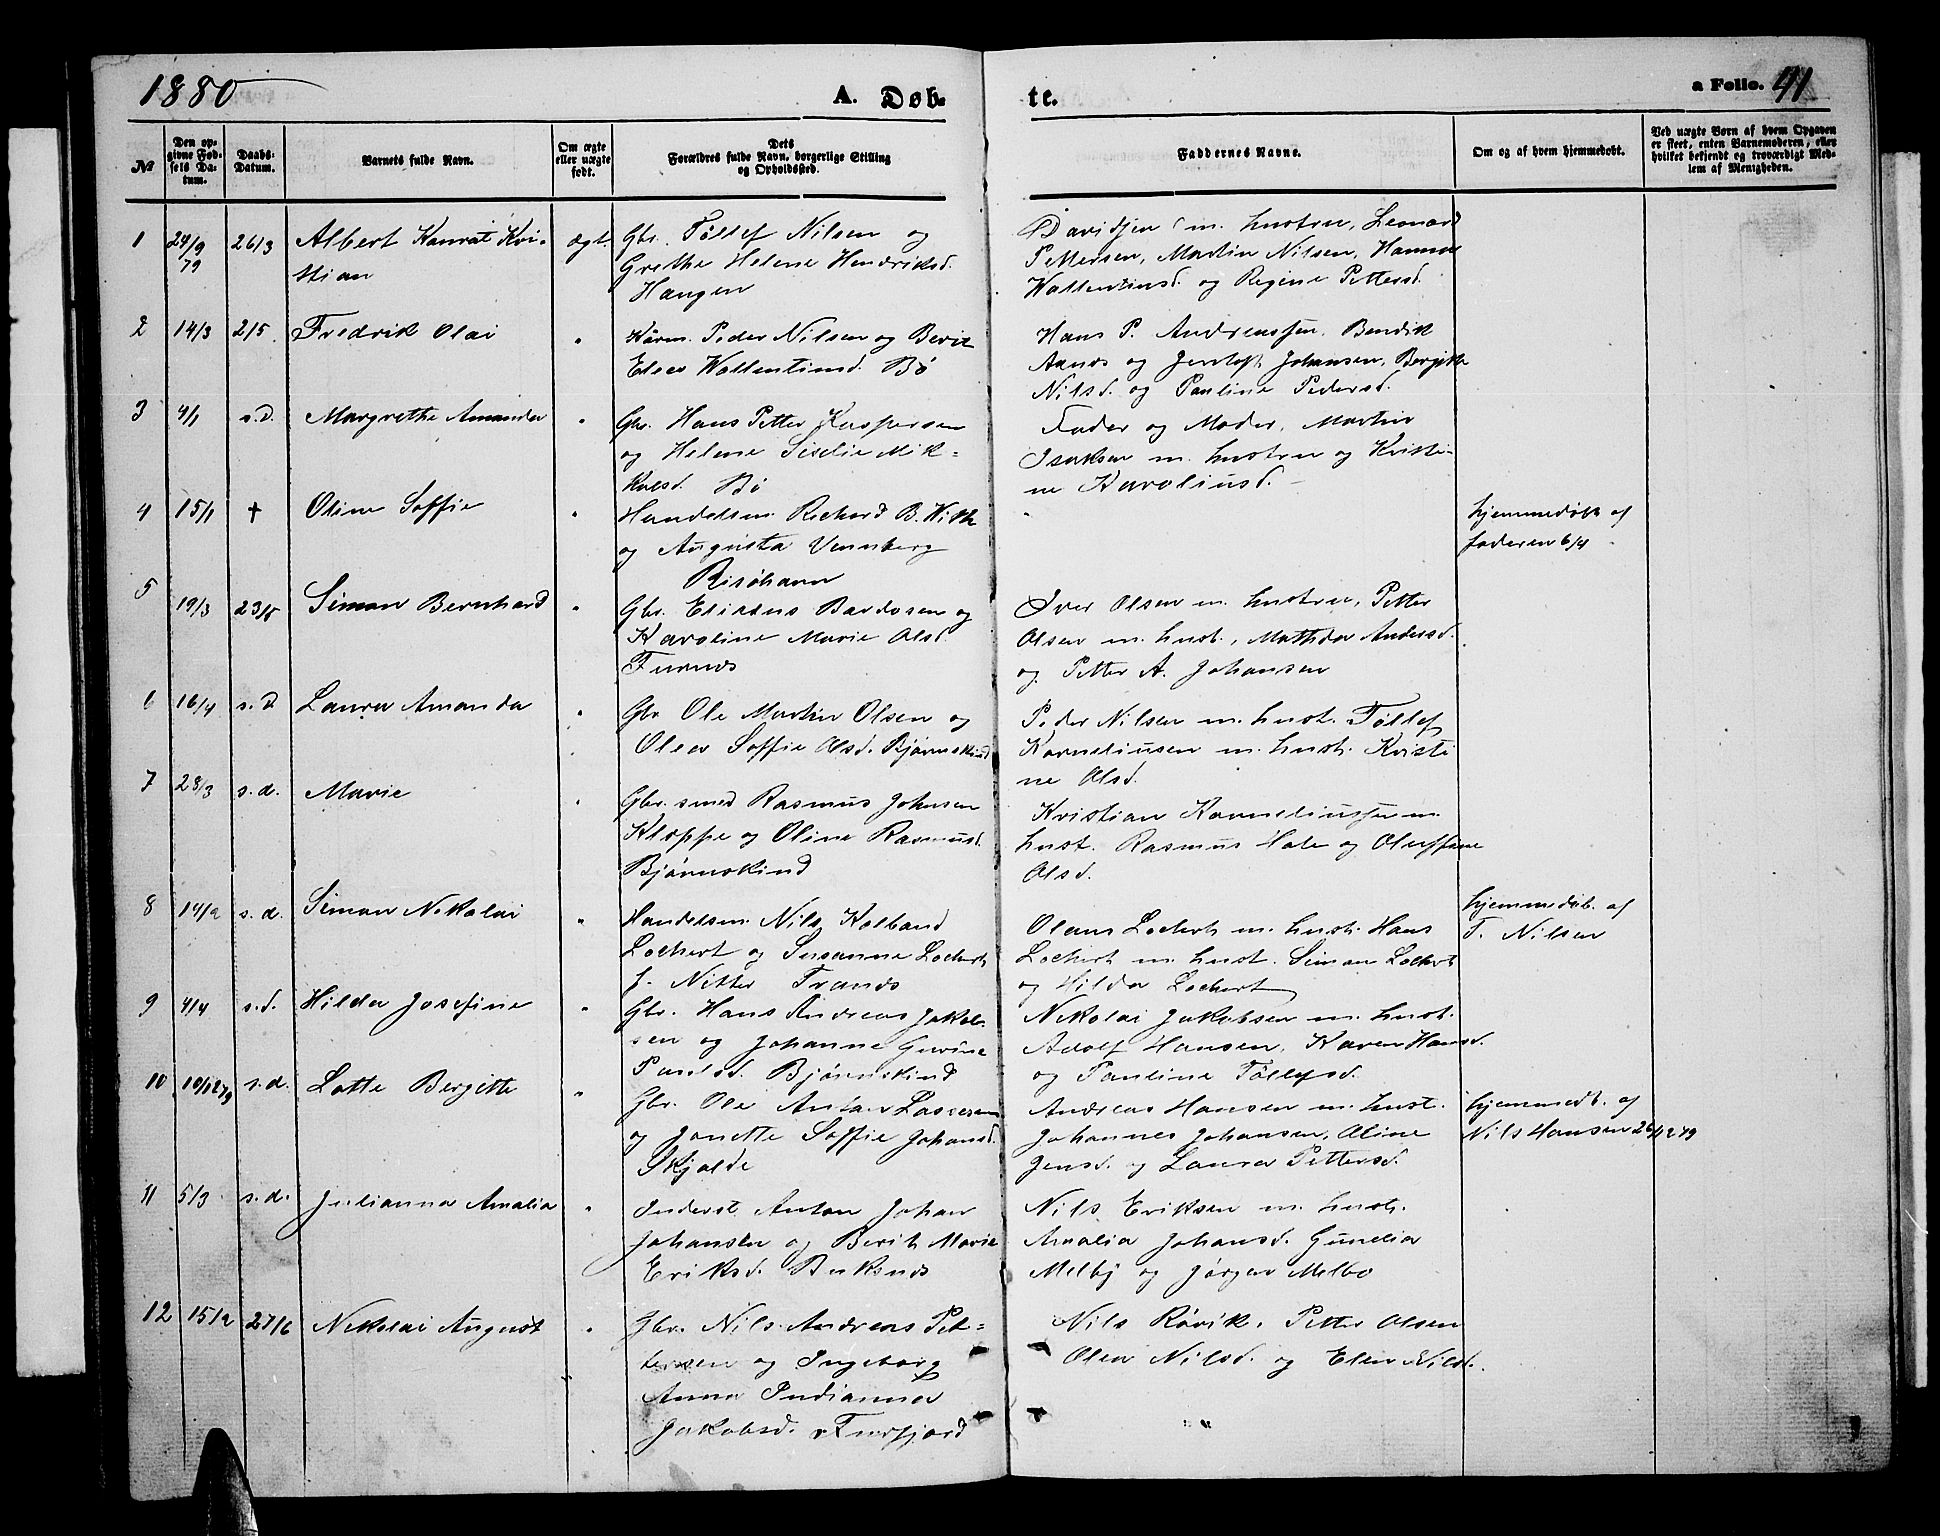 1880
A. Døb-
te.
a Folio. 41
№
Den op-
givne Fød-
sels Da-
tum.
Daabs-
Datum.
Barnets fulde Navn.
Om ægte
eller uægte
født.
Dets
Forældres fulde Navn, borgerlige Stilling
og Opholdssted.
Faddernes Navne.
Om og af hvem hjemmedøbt.
Ved uægte Børn af hvem Opgaven
er skeet, enten Barnemoderen, eller
hvilket bekjendt og troværdigt Med-
lem af Menigheden.
1 24/9 79 26/3 Albert Konrat Kri-
stian
ægt.
Gbr. Tøllef Nilsen og
Grethe Helene Hendriksd.
Haugen
Davidsen m. hustru, Leonard
Pettersen, Martin Nilsen, Hanna
Wallentinsd. og Regine Pettersd.
2 14/3 2/5 Fredrik Olai "
Peder Nilsen og Berit
Elea Wallentinsd. Bø
Hans P. Andreassen, Bendik
Aanæs og Johansen, Bergitte
Nilsd. og Pauline Pedersd.
3 4/1 s.d. Margrethe Amanda "
Gbr. Hans Petter Kaspersen
og Helene Sicelie Mik-
kelsd. Bø
Fader og Moder, Martin
Isaksen m. hustru og Kristi-
ne Karoliusd.
4 15/1 † Oline Soffie "
Handelsm. Richard B. With
og Augusta Vennberg
Risøhavn
"
hjemmedøbt af
faderen 6/4
5 19/3 23/5 Simon Bernhard "
Gbr. Eliseus Bardosen og
Karoline Marie Olsd.
Furnæs
Iver Olsen m. hustru, Petter
Olsen m. hust., Mathilda Andersd.
og Petter A. Johansen
6 16/4 s.d. Laura Amanda "
Gbr. Ole Martin Olsen og
Olea Soffie Olsd. Bjørnskind
Peder Nilsen m. hust. Tøllef
Korneliusen m. hust. Kristi
ne Olsd.
7 28/3 s.d. Marie "
Gbr. smed Rasmus Johnsen
Kloppe og Oline Rasmusd.
Bjørnskind
Kristian Korneliussen m.
hust. Rasmus Hole og Oluffine
Olsd.
8 14/2 s.d. Simon Nikolai "
Handelsm. Nils Kolband
Lochert og Susanne Lochert
f. Nitter Tranæs
Olaus Lochert m. hust. Hans
Lochert m. hust. Simon Lochert
og Hilda Lochert
hjemmedøb. af
T. Nilsen
9 4/4 s.d. Hilda Josefine "
Gbr. Hans Andreas Jakob-
sen og Johanne Gurine
Paulsd. Bjørnskind
Nikolai Jakobsen m. hust.
Adolf Hansen, Karen Hansd.
og Pauline Tøllefsd.
10 10/12 79 s.d. Lotte Bergitte "
Gbr. Ole Anton Lassesen
og Jonette Soffie Johansd.
Skjolde
Andreas Hansen m. hust.
Johannes Johansen, Oline
Jensd. og Laura Pettersd.
hjemmedt. af
Nils Hansen 26/12 79
11 5/3 s.d. Julianna Amalia "
Inderst Anton Johan
Johansen og Berith Marie
Eriksd. Buksnæs
Nils Eriksen m. hust.
Amalia Johansd. Gunelia
Melby og Jørgen Melbo
12 15/2 27/6 Nikolai August "
Gbr. Nils Andreas Pet-
tersen og Ingeborg
Anna Indianna
Jakobsd. Forfjord
Nils Røvik, Petter Olsen
Olea Nilsd. og Elen Nilsd.
" "